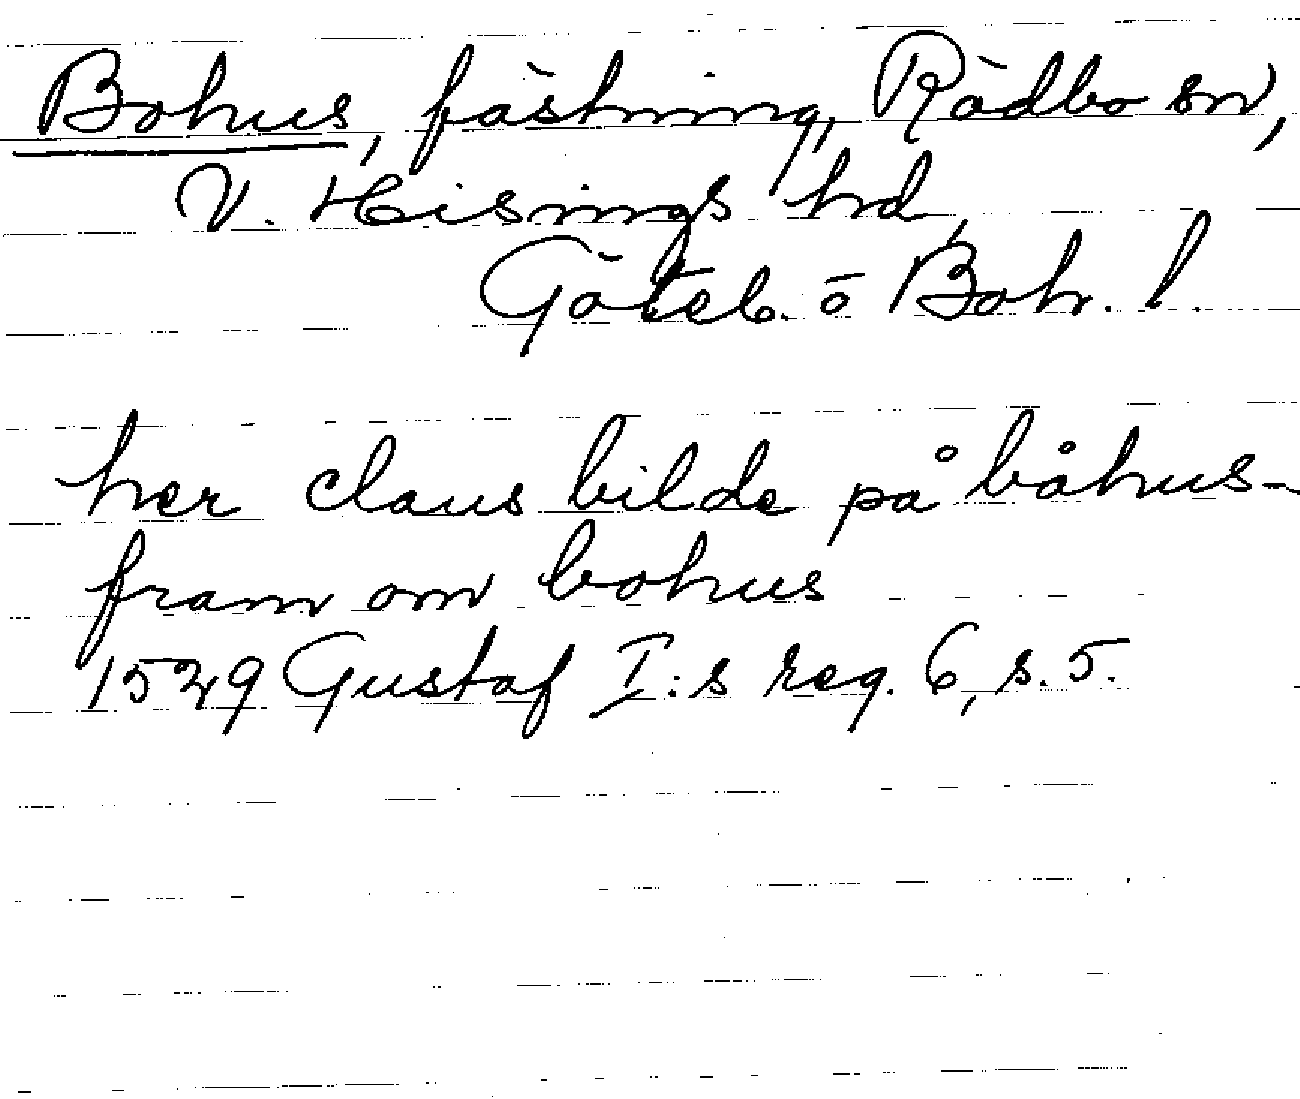 Bohus, fästning, Rödbo sn,
V. Hisings hd,
Göteb. o Boh. l.
her claus bilde på båhus-
fram om bohus
1529 Gustaf I:s reg. 6, s. 5.